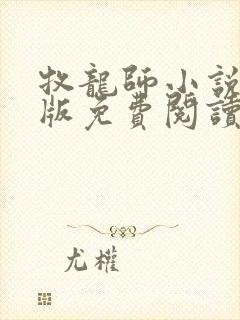 牧龍師小說
版免費閱讀
尤權